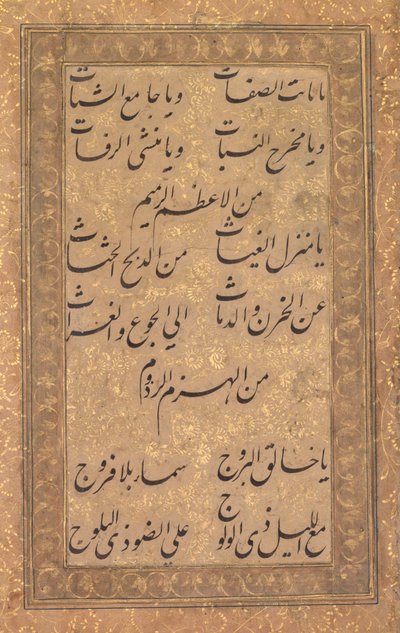 يا ثابت الصفات ويا جامع الشتات
ويا مخرج النبات ويا منشى الرفات
من الاعظم الرميم
يا منزل الغياث من الدلح الحثاث
عن الحزن والدماث الي الجوع والغراث
من الهزم الرزوم
يا خالق البروج سماء بلا فروج
مع الليل ذي الولوج علي الضوء ذي البلوج